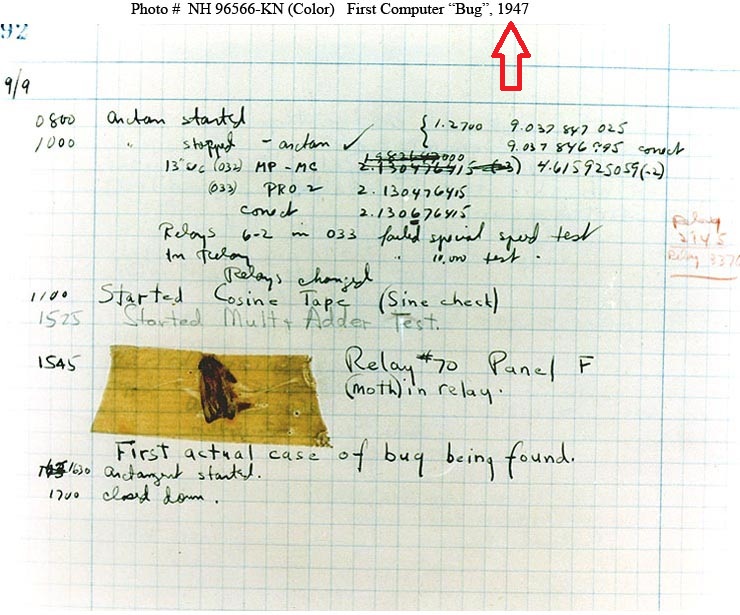 Photo # NH 96566-KN (Color) First Computer “Bug”, 1947
92
9/9
0800 antan started
1000 " stopped - antan ✓ { 1.2700 9.037 847 025
9.037 846 995 correct
13" uc (032) MP - MC 2.130476415 (-3) 4.615925059(-2)
(033) PRO 2 2.130476415
correct 2.130676415
Relays 6-2 in 033 failed special speed test
In Relay " 10,000 test .
Relays changed
Relay
2145
Relay 3370
1100 Started Cosine Tape (Sine check)
1525 Started Mult + Adder Test.
1545 Relay #70 Panel F
(moth) in relay.
First actual case of bug being found.
1630 antangent started.
1700 closed down .